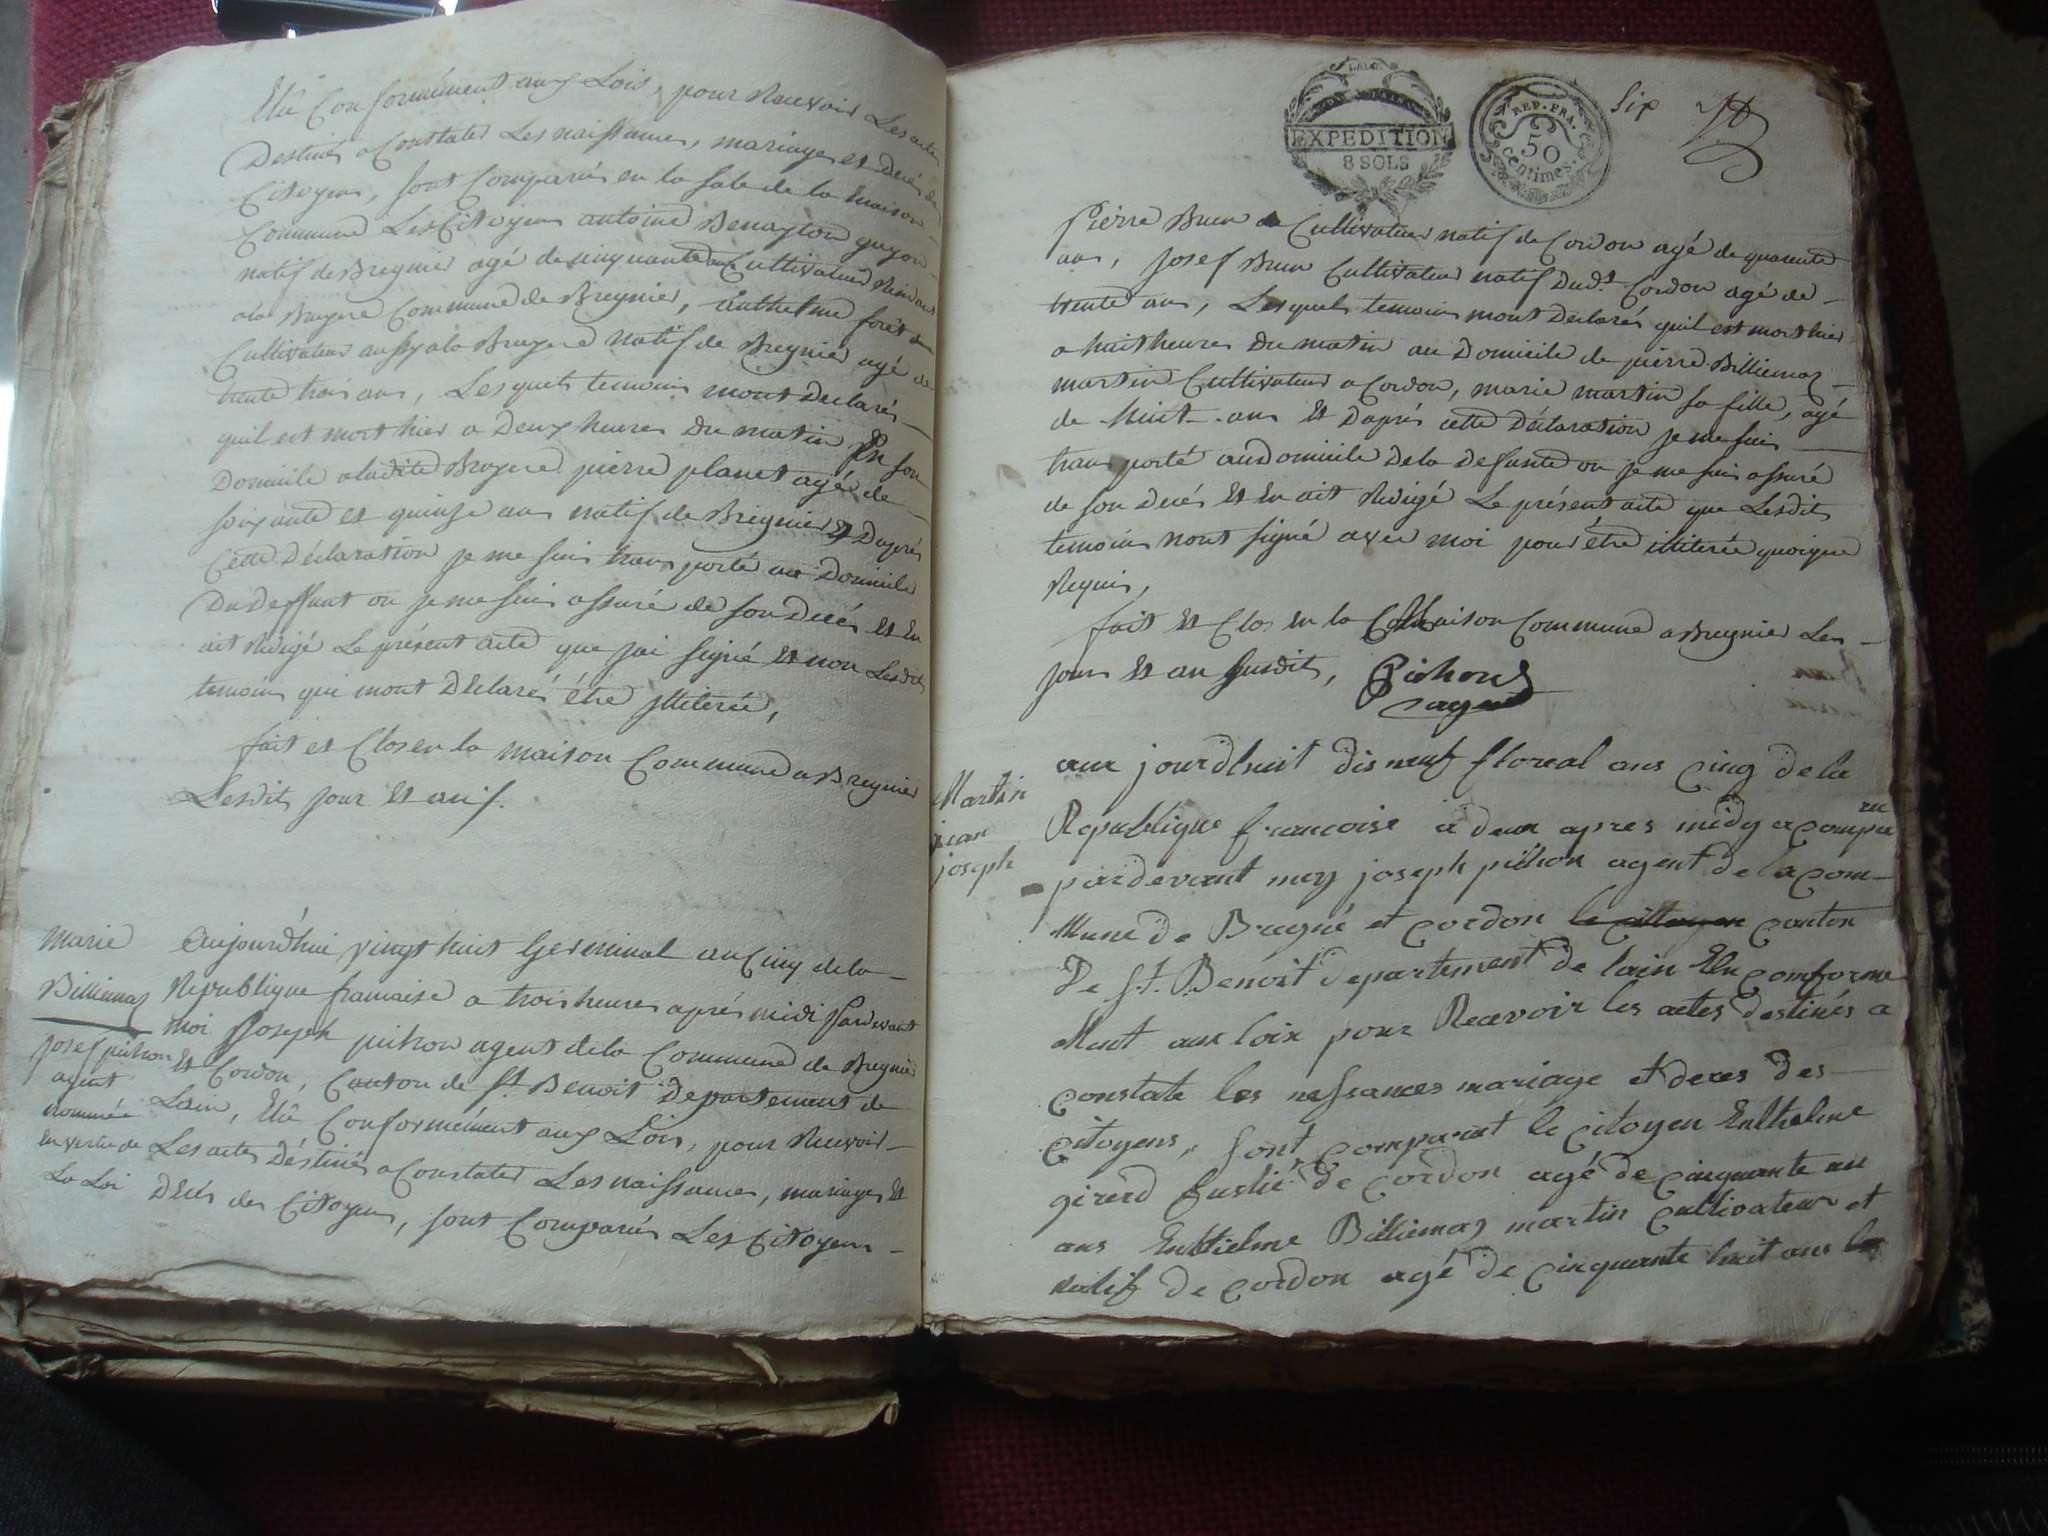 Elû Conformément aux Lois, pour Recevoir Les actes
Destinés a Constater Les naissances, mariages et Decés des
Citoyens, sont Comparus en la sale de la maison
Commune Les Citoyens antoine Benayton guyon
natif de Bregnier agé de cinquante ans Cultivateur
a la Bruyere Commune de Bregnier, Enthelme forêt
Cultivateur aussy a la Bruyere natif de Bregnier agé de
trente trois ans, Lesquels temoins mont Declarés
quil est mort hier a Deux heures du matin En son
Domicile a ladite Bruyere pierre planet agé de
soixante et quinze ans natif de Bregnier Et Daprés
Cette Déclaration je me suis transporté au Domicile
Du Deffunt ou je me suis assuré de son Decés Et En
ait Redigé Le présent acte que jai signé Et non Lesdits
temoins qui mont Declarés étre illiterée,
fait et Clos en la maison Commune a Bregnier
Lesdit jour Et an
marie
Billiemaz
josef pichon
agent
nommée
en vertu de
La Loi
Aujourdhui vingt huit Germinal an Cinq de la
Republique francaise a trois heures aprés midi Pardevant
moi Joseph pichon agent de la Commune de Bregnier
Et Cordon, Canton de St. Benoit Departement de
Lain, Elû Conformément aux Lois, pour Recevoir
Les actes Déstinés a Constater Les naissances, mariages Et
Decés des Citoyens, sont Comparus Les Citoyens
EXPEDITION
8 SOLS
REP. FRA.
50
centimes.
Six
Pierre Brun Cultivateur natif de Cordon agé de quarente
ans, Josef Brun Cultivateur natif Dudt. Cordon agé de
trente ans, Lesquels temoins mont Declarés quil est mort hier
a huit heures Du matin au Domicile de pierre Billiemaz
martin Cultivateur a Cordon, marie martin sa fille, agé
de huit ans Et Daprés cette Déclaration je me suis
transporté au domicile De la Defunte ou je me suis assuré
de son Decés Et En ait Redigé Le présent acte que Lesdits
temoins nont signé avec moi pour étre illiterée quoique
Requis,
fait Et Clos en la Maison Commune a Bregnier Les
jour Et an susdit, Pichon
agent
Martin
jean
joseph
aux jourdhuit dis neuf floreal ans cinq de la
Republique francoise a deux apres midy a comparu
pardevant moy joseph pichon agent de la com
Mune de Bregné et cordon le citoyen canton
De St. Benoit departement de lain Elu comforme
Ment aux loix pour Recevoir les actes destinés a
constate les nessances mariage et deces des
citoyens, sont comparut le citoyen Enthelme
girerd de cordon agé de cinquante un
ans Enthelme Billiemaz martin cultivateur et
natif de cordon agé de cinquante huit ans